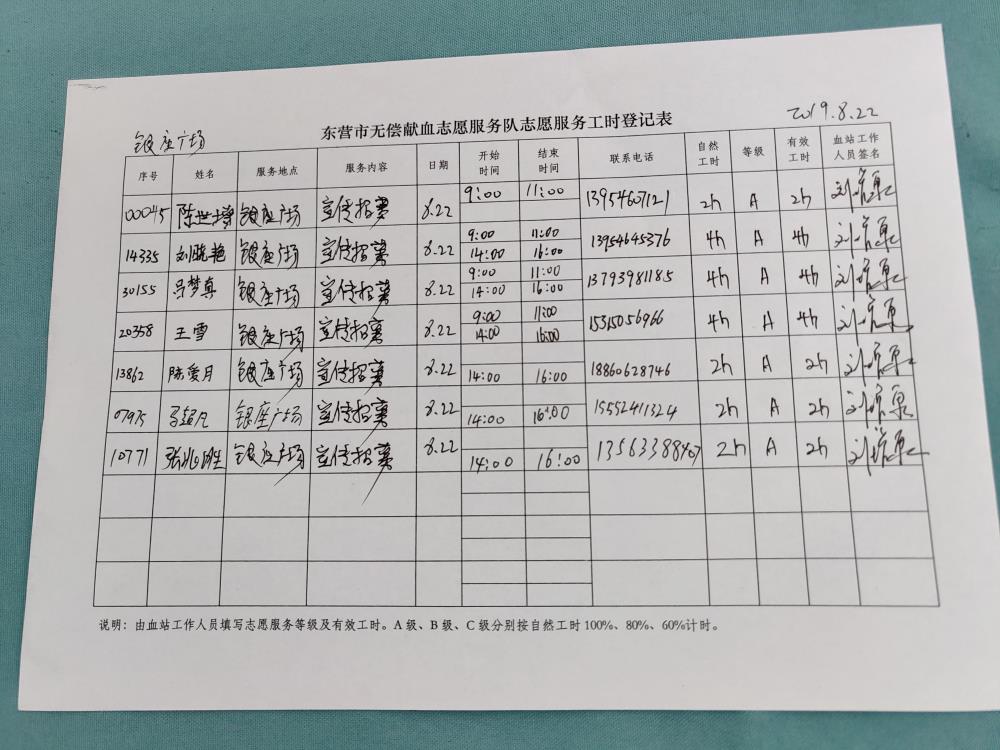 银座广场
2019.8.22
东营市无偿献血志愿服务队志愿服务工时登记表
序号 姓名 服务地点 服务内容 日期 开始时间 结束时间 联系电话 自然工时 等级 有效工时 血站工作人员签名
00045 银座广场 宣传招募 8.22 9:00 11:00 13954607121 2h A 2h
14335 刘晓艳 银座广场 宣传招募 8.22 9:00 11:00 14:00 16:00 13954645376 4h A 4h
30155 吴梦真 银座广场 宣传招募 8.22 9:00 11:00 14:00 16:00 13793981185 4h A 4h
20358 王雪 银座广场 宣传招募 8.22 9:00 11:00 14:00 16:00 15315056966 4h A 4h
13862 陈爱月 银座广场 宣传招募 8.22 14:00 16:00 18860628746 2h A 2h
07975 马超凡 银座广场 宣传招募 8.22 14:00 16:00 15552411324 2h A 2h
10771 张兆胜 银座广场 宣传招募 8.22 14:00 16:00 2h A 2h
说明：由血站工作人员填写志愿服务等级及有效工时。A级、B级、C级分别按自然工时100%、80%、60%计时。